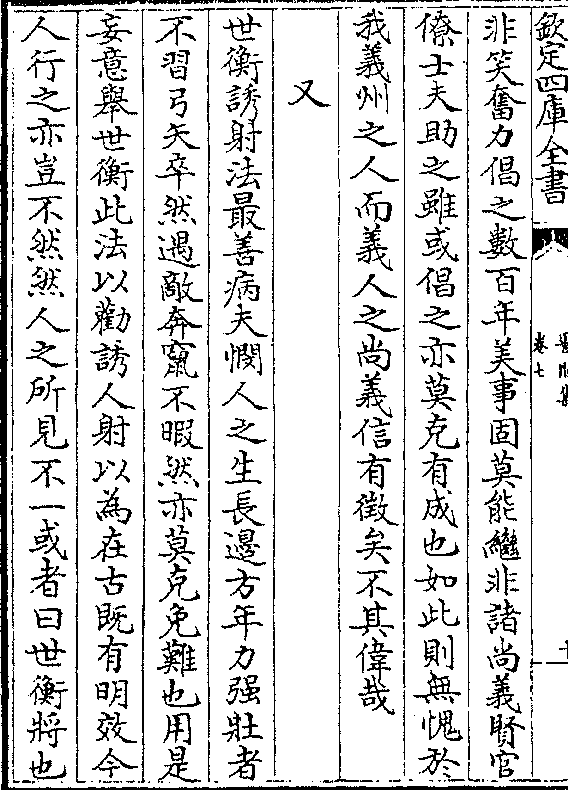 欽定四庫全書
卷七
非笑奮力倡之數百年美事固莫能繼非諸尚義賢官
僚士夫助之雖或倡之亦莫克有成也如此則無愧於
我義州之人而義人之尚義信有徵矣不其偉哉
又
世衡誘射法最善病夫憫人之生長邊方年力强壯者
不習弓矢卒然遇敵奔竄不暇然亦莫克免難也用是
妄意舉世衡此法以勸誘人射以為在古既有明效今
人行之亦豈不然然人之所見不一或者曰世衡將也